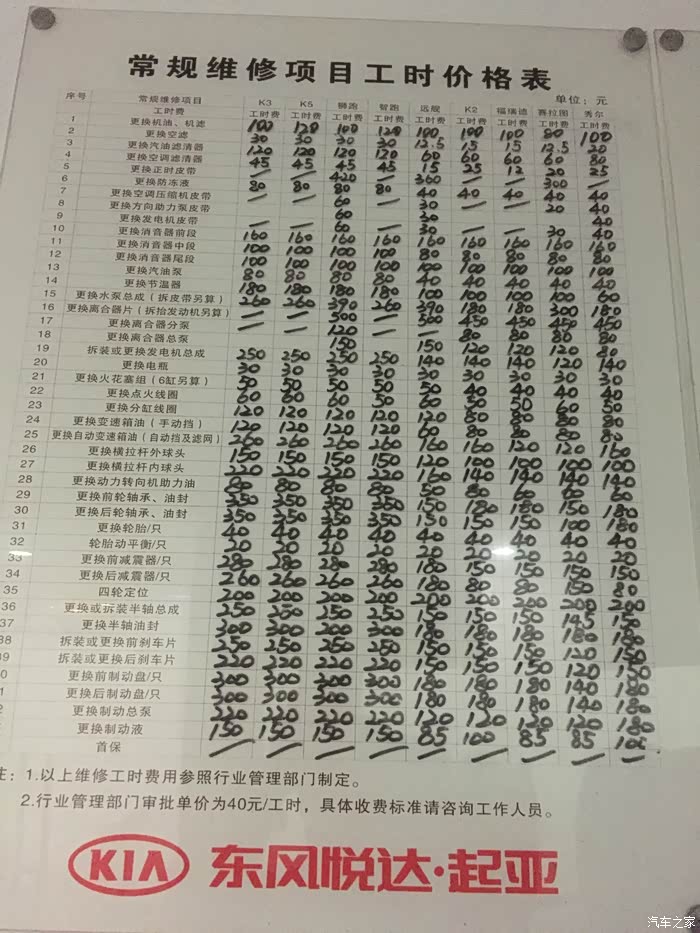 常规维修项目工时价格表
单位：元
序号 常规维修项目 K3 K5 狮跑 智跑 远舰 K2 福瑞迪 赛拉图 秀尔
工时费 工时费 工时费 工时费 工时费 工时费 工时费 工时费 工时费 工时费
1 更换机油、机滤 100 120 100 120 100 100 100 80 100
2 更换空滤 30 30 30 30 12.5 15 15 12.5 20
3 更换汽油滤清器 120 120 120 120 60 60 60 60 80
4 更换空调滤清器 45 45 45 45 15 25 12 20 25
5 更换正时皮带
6 更换防冻液 80 80 80 80 40 40 40 40 40
7 更换空调压缩机皮带
8 更换方向助力泵皮带
9 更换发电机皮带
10 更换消音器前段 160 160 160 160 160 160 160 160 160
11 更换消音器中段 100 100 100 100 80 80 80 80 80
12 更换消音器尾段 100 100 100 100 100 100 100 100 100
13 更换汽油泵 80 80 80 80 40 40 40 40 40
14 更换节温器 180 180 180 180 100 100 100 100 60
15 更换水泵总成（拆皮带另算） 260 260 390 260 390 180 180 300 180
16 更换离合器片（拆抬发动机另算）
17 更换离合器分泵
18 更换离合器总泵
19 拆装或更换发电机总成 250 250 250 250 140 140 140 120 140
20 更换电瓶 30 30 30 30 30 30 30 30 30
21 更换火花塞组（6缸另算） 50 50 50 50 50 40 40 40 40
22 更换点火线圈 60 60 60 50 60 50 50 60 50
23 更换分缸线圈 120 120 120 120 120 80 80 80 80
24 更换变速箱油（手动挡） 120 120 120 120 60 80 80 80 80
25 更换自动变速箱油（自动挡及滤网） 260 260 260 260 160 160 120 120 160
26 更换横拉杆外球头 150 150 150 150 120 100 100 100 100
27 更换横拉杆内球头 220 220 220 220 160 140 140 140 140
28 更换动力转向机助力油 80 80 80 80 50 80 60 60 60
29 更换前轮轴承、油封 350 350 350 350 150 180 180 150 180
30 更换后轮轴承、油封 350 350 350 350 150 150 150 100 180
31 更换轮胎/只 40 40 40 40 40 40 40 40 40
32 轮胎动平衡/只 20 20 20 20 20 20 20 20 20
33 更换前减震器/只 280 280 280 280 180 150 150 150 150
34 更换后减震器/只 260 260 260 260 180 80 80 150 80
35 四轮定位 200 200 200 200 200 200 200 200 200
36 更换或拆装半轴总成 250 250 250 250 150 150 150 145 150
37 更换半轴油封 300 300 200 300 180 180 180 180 180
38 拆装或更换前刹车片 250 250 250 250 150 150 150 120 150
39 拆装或更换后刹车片 220 220 220 220 150 150 150 120 150
0 更换前制动盘/只 300 300 300 300 180 180 180 140 180
1 更换后制动盘/只 300 300 300 300 180 180 180 140 180
2 更换制动总泵 220 220 220 220 120 120 120 120 180
更换制动液 150 150 150 150 85 100 85 85 100
首保
注：1.以上维修工时费用参照行业管理部门制定。
2.行业管理部门审批单价为40元/工时，具体收费标准请咨询工作人员。
KIA 东风悦达·起亚
汽车之家